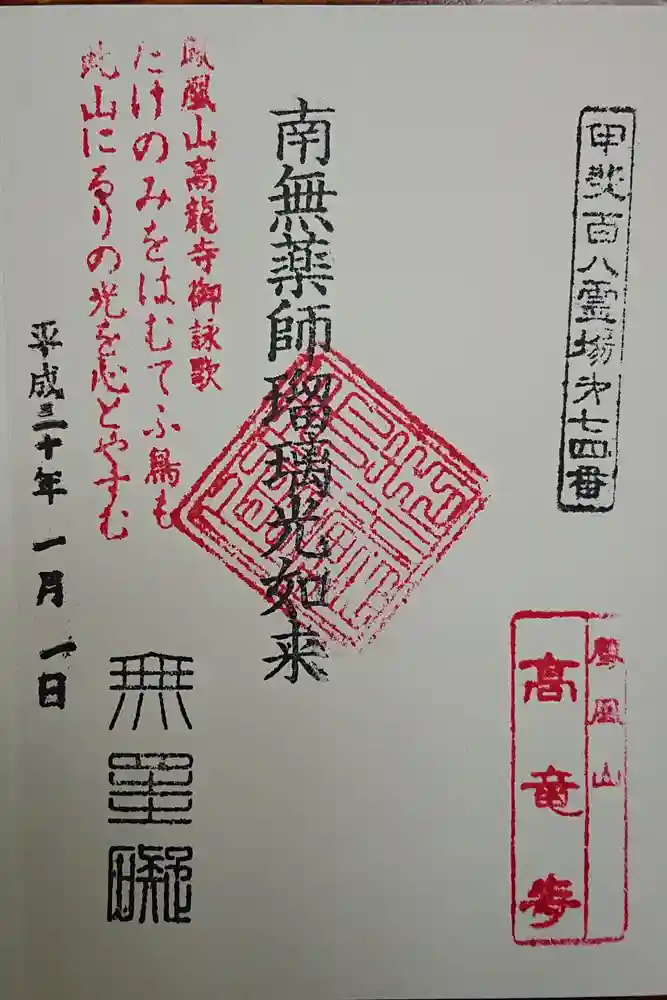 甲斐百八霊場第七四番
鳳凰山
高竜寺
南無薬師瑠璃光如来
鳳凰山高龍寺御詠歌
たけのみをはむてふ鳥も
此山にるりの光を心とやすむ
無罣礙
平成三十年 一月 一日